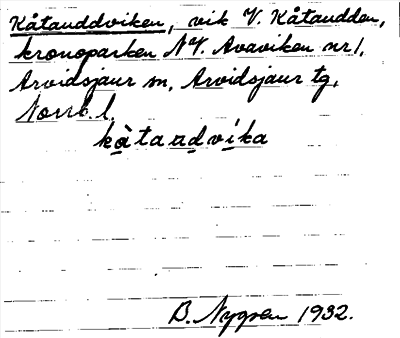 Kåtauddviken, vik V. Kåtaudden,
kronoparken N.V. Avaviken nr 1,
Arvidsjaur sn, Arvidsjaur tg,
Norrb. l.
kåtaudvika
B. Nygren 1932.